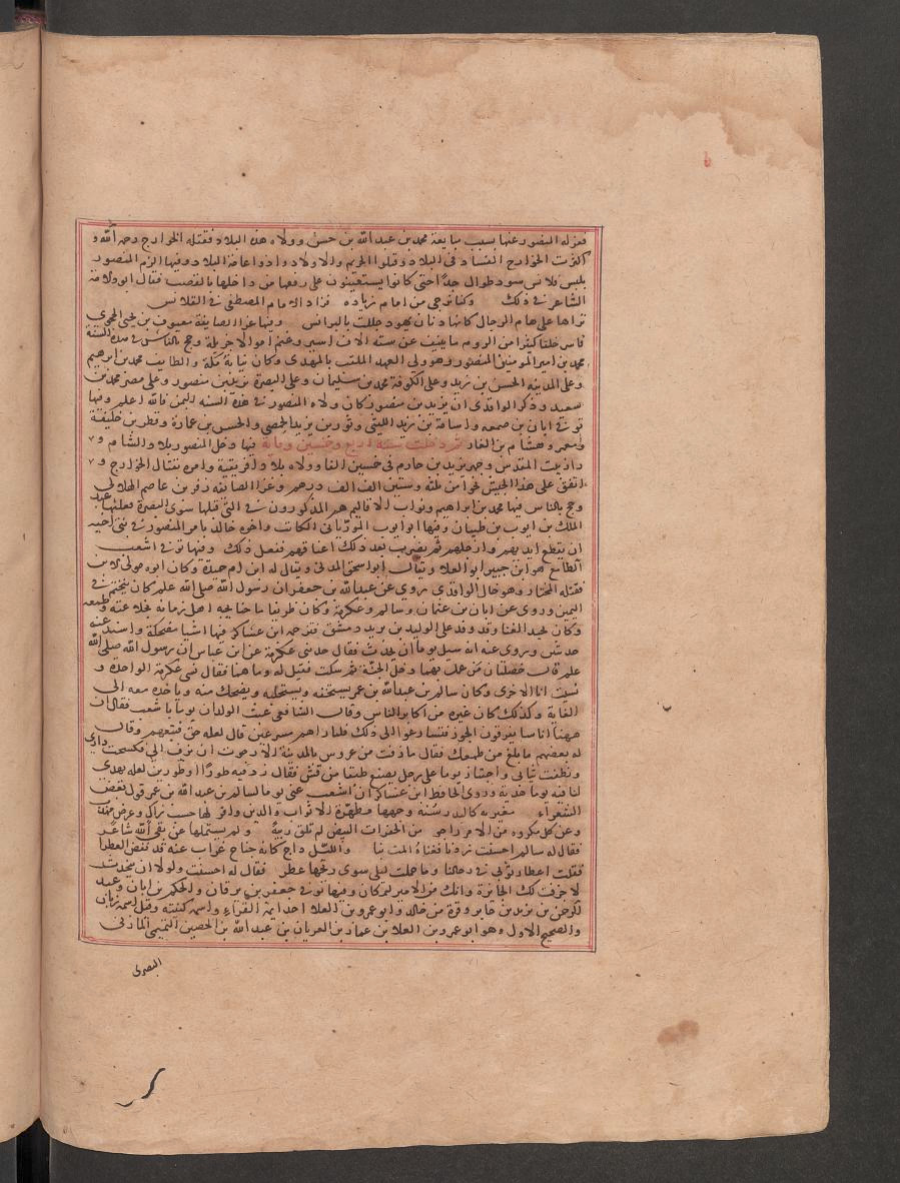 فعزله المنصور عنها بسبب مبايعة محمد بن عبدالله بن حسن وولاه هذه البلاد فقتله الخوارج رحمه الله و
اكثرت الخوارج الفساد فى البلاد وقتلوا الحريم والاولاد واذوا عامة البلاد وفيها الزم المنصور
بلبس قلانس سود طوال جدا حتى كانوا يستعينون على رفعها من داخلها بالقصب فقال ابو دلامة
الشاعر فى ذلك وكنا نرجى من امام زياده فزاد الامام المصطفى فى القلانس
تراها على هام الرجال كانها دنان يهود جللت بالبرانس وفيها غزا الصايفة معيوف بن يحيى الحجورى
فاسر خلقا كثيرا من الروم ما ينيف عن ستة الاف اسير وغنم اموالا جزيلة وحج بالناس فى هذه السنة
محمد بن امير المومنين المنصور وهو ولى العهد الملقب بالمهدى وكان نيابة مكة والطايف محمد بن ابرهيم
وعلى المدينه الحسن بن زيد وعلى الكوفة محمد بن سليمان وعلى البصرة يزيد بن منصور وعلى مصر محمد بن
سعيد وذكر الواقدى ان يزيد بن منصور كان ولاه المنصور فى هذه السنه اليمن فالله اعلم وفيها
توفى ابان بن صمعه واسامة بن زيد الليثى وثور بن يزيد الحمصى والحسن بن عمارة وفطر بن خليفة
ومعمر وهشام بن الغاز ثم دخلت سنة اربع وخمسين وماية فيها دخل المنصور بلاد الشام و
زار بيت المقدس وجهز يزيد بن حاتم فى خمسين الفا وولاه بلاد افريقية وامره بقتال الخوارج و
انفق على هذا الجيش نحوا من ثلثه وستين الف الف درهم وغزا الصائفه زفر بن عاصم الهلالى
وحج بالناس فيها محمد بن ابراهيم ونواب الاقاليم هم المذكورون فى التى قبلها سوى البصرة فعليها عبد
الملك بن ايوب بن ظبيان وفيها ابو ايوب الموريانى الكاتب واخوه خالد بامر المنصور فى بنى اخيه
ان يقطع ايديهم وارجلهم ثم يضرب بعد ذلك اعناقهم ففعل ذلك وفيها توفى اشعب
الطامع هو ابن جبير ابو العلا ويقال ابو اسحق المدنى ويقال له ابن ام حميدة وكان ابوه مولى لابن
فقتله المختار وهو خال الواقدى روى عن عبدالله بن جعفر ان رسول الله صلى الله عليه كان يتختم فى
اليمين وروى عن ابان بن عثمان وسالم وعكرمة وكان ظريفا ماجنا يحبه اهل زمانه لخلاعته وطمعه
وكان يجيد الغنا وقد وفد على الوليد بن يزيد دمشق فترجمه ابن عساكر فيها اشيا مضحكة واسند عنه
حديثين وروى عنه انه سيل يوما ان يحدث فقال حدثنى عكرمة عن ابن عباس ان رسول الله صلى الله
عليه قال خصلتان من عمل بهما دخل الجنة ثم سكت فقيل له وما هما فقال نسى عكرمة الواحدة و
نسيت انا الاخرى وكان سالم بن عبدالله بن عمر يستخفه ويستحليه ويضحك منه وياخذه معه الى
الغابة وكذلك كان غيره من اكابر الناس وقال الشافعى عبث الولدان يوما باشعب فقال ان
ههنا اناسا يفرقون الجوز فتسارعوا الى ذلك فلما راهم مسرعين قال لعله حق فتبعهم وقال
له بعضهم ما بلغ من طمعك فقال ما زفت عروس بالمدينة الا رجوت ان تزف الى فكسحت دارى
ونظفت ثيابى واجتاز يوما على رجل يصنع طبقا من قش فقال زد فيه طورا او طورين لعله يهدى
لنا فيه يوما هدية وروى الحافظ ابن عساكر ان اشعب غنى يوما لسالم بن عبدالله بن عمر قول بعض
الشعراء مغيريه كالبدر سنة وجهها مطهرة الاثواب والدين وافر لها حسب زاكى وعرض مهذب
وعن كل مكروه من الامر زاجر من الخفرات البيض لم تلق ريبة ولم يستملها عن تقى الله شاعر
فقال له سالم احسنت فزدنا فغناه المت بنا والليل داج كانه جناح غراب عنه قد نفض القطرا
فقلت اعطار ثوى فى رحالنا وما حملت ليلى سوى ريحها عطرا فقال له احسنت ولولا ان يتحدث
لاجزلت لك الجائزة وانك من الامر لبمكان وفيها توفى جعفر بن برقان والحكم بن ابان وعبد
الرحمن بن يزيد بن جابر وقرة بن خالد وابو عمرو بن العلا احد ايمة القراء واسمه كنيته وقيل اسمه زبان
والصحيح الاول وهو ابو عمرو بن العلا بن عمار بن العريان بن عبدالله بن الحصين التميمى المازنى
البصرى